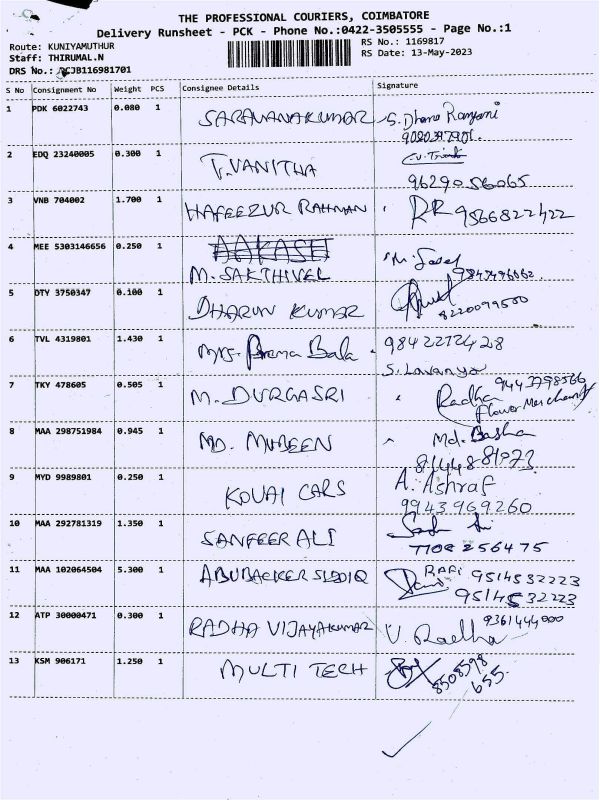 THE PROFESSIONAL COURIERS, COIMBATORE
Delivery Runsheet - PCK - Phone No.:0422-3505555 - Page No.:1
Route: KUNIYAMUTHUR RS No.: 1169817
Staff: THIRUMAL.N RS Date: 13-May-2023
DRS No.: PCJB116981701
S No Consignment No Weight PCS Consignee Details Signature
1 PDK 6022743 0.080 1 SARAVANAKUMAR S. Dhana Ranjani
2 EDQ 23240005 0.300 1 T.VANITHA
9629056065
3 VNB 704002 1.700 1 HAFEEZUR RAHMAN RR 9566822422
4 MEE 5303146656 0.250 1 AAKASH
M. SAKTHIVEL
5 DTY 3750347 0.100 1 DHARUN KUMAR
8220099500
6 TVL 4319801 1.430 1 Mrs. Prema Bala
S. Lavanya
7 TKY 478605 0.505 1 M. DURGASRI Radha
Flower Merchant
8 MAA 298751984 0.945 1 MD. MUBEEN Md. Basha
9 MYD 9989801 0.250 1 KOVAI CARS A. Ashraf
9943969260
10 MAA 292781319 1.350 1 SANFEER ALI
11 MAA 102064504 5.300 1 ABUBACKER SIDDIQ RAFI 9514532223
9514532223
12 ATP 30000471 0.300 1 RADHA VIJAYAKUMAR V. Radha 9361444000
13 KSM 906171 1.250 1 MULTI TECH 8508598
655.